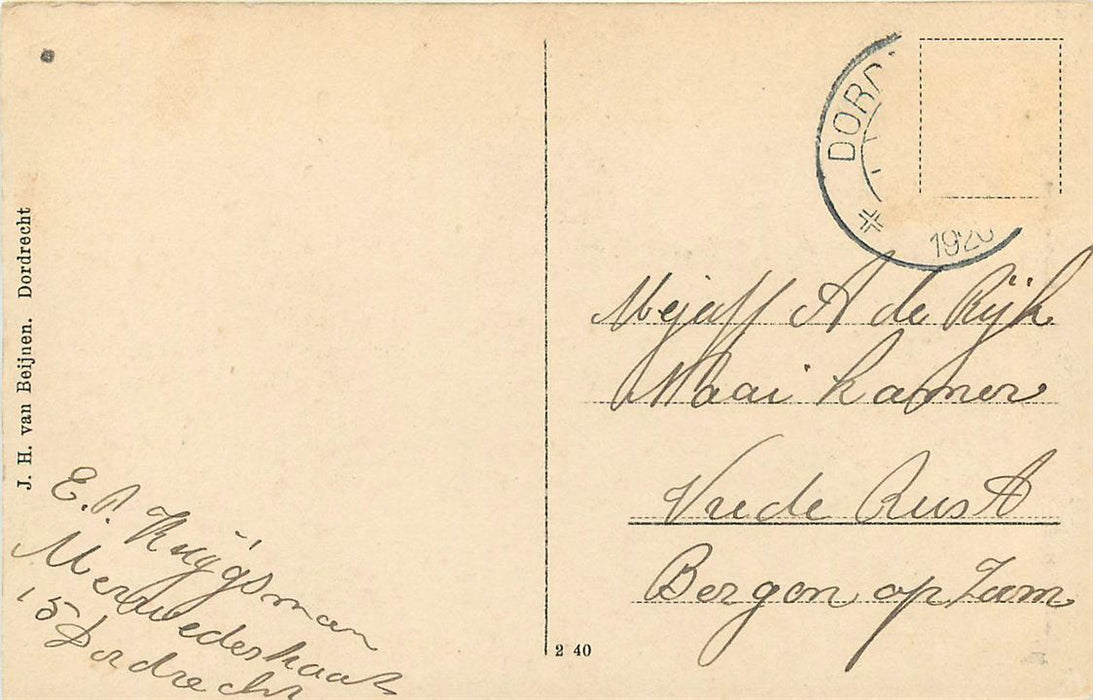 J. H. van Beijnen. Dordrecht
DORD
1920
Mejuff A de Rijk
Naai kamer
Vrede Rust
Bergen op Zoom
E. P.
Merwedestraat
15 Dordrecht
2 40